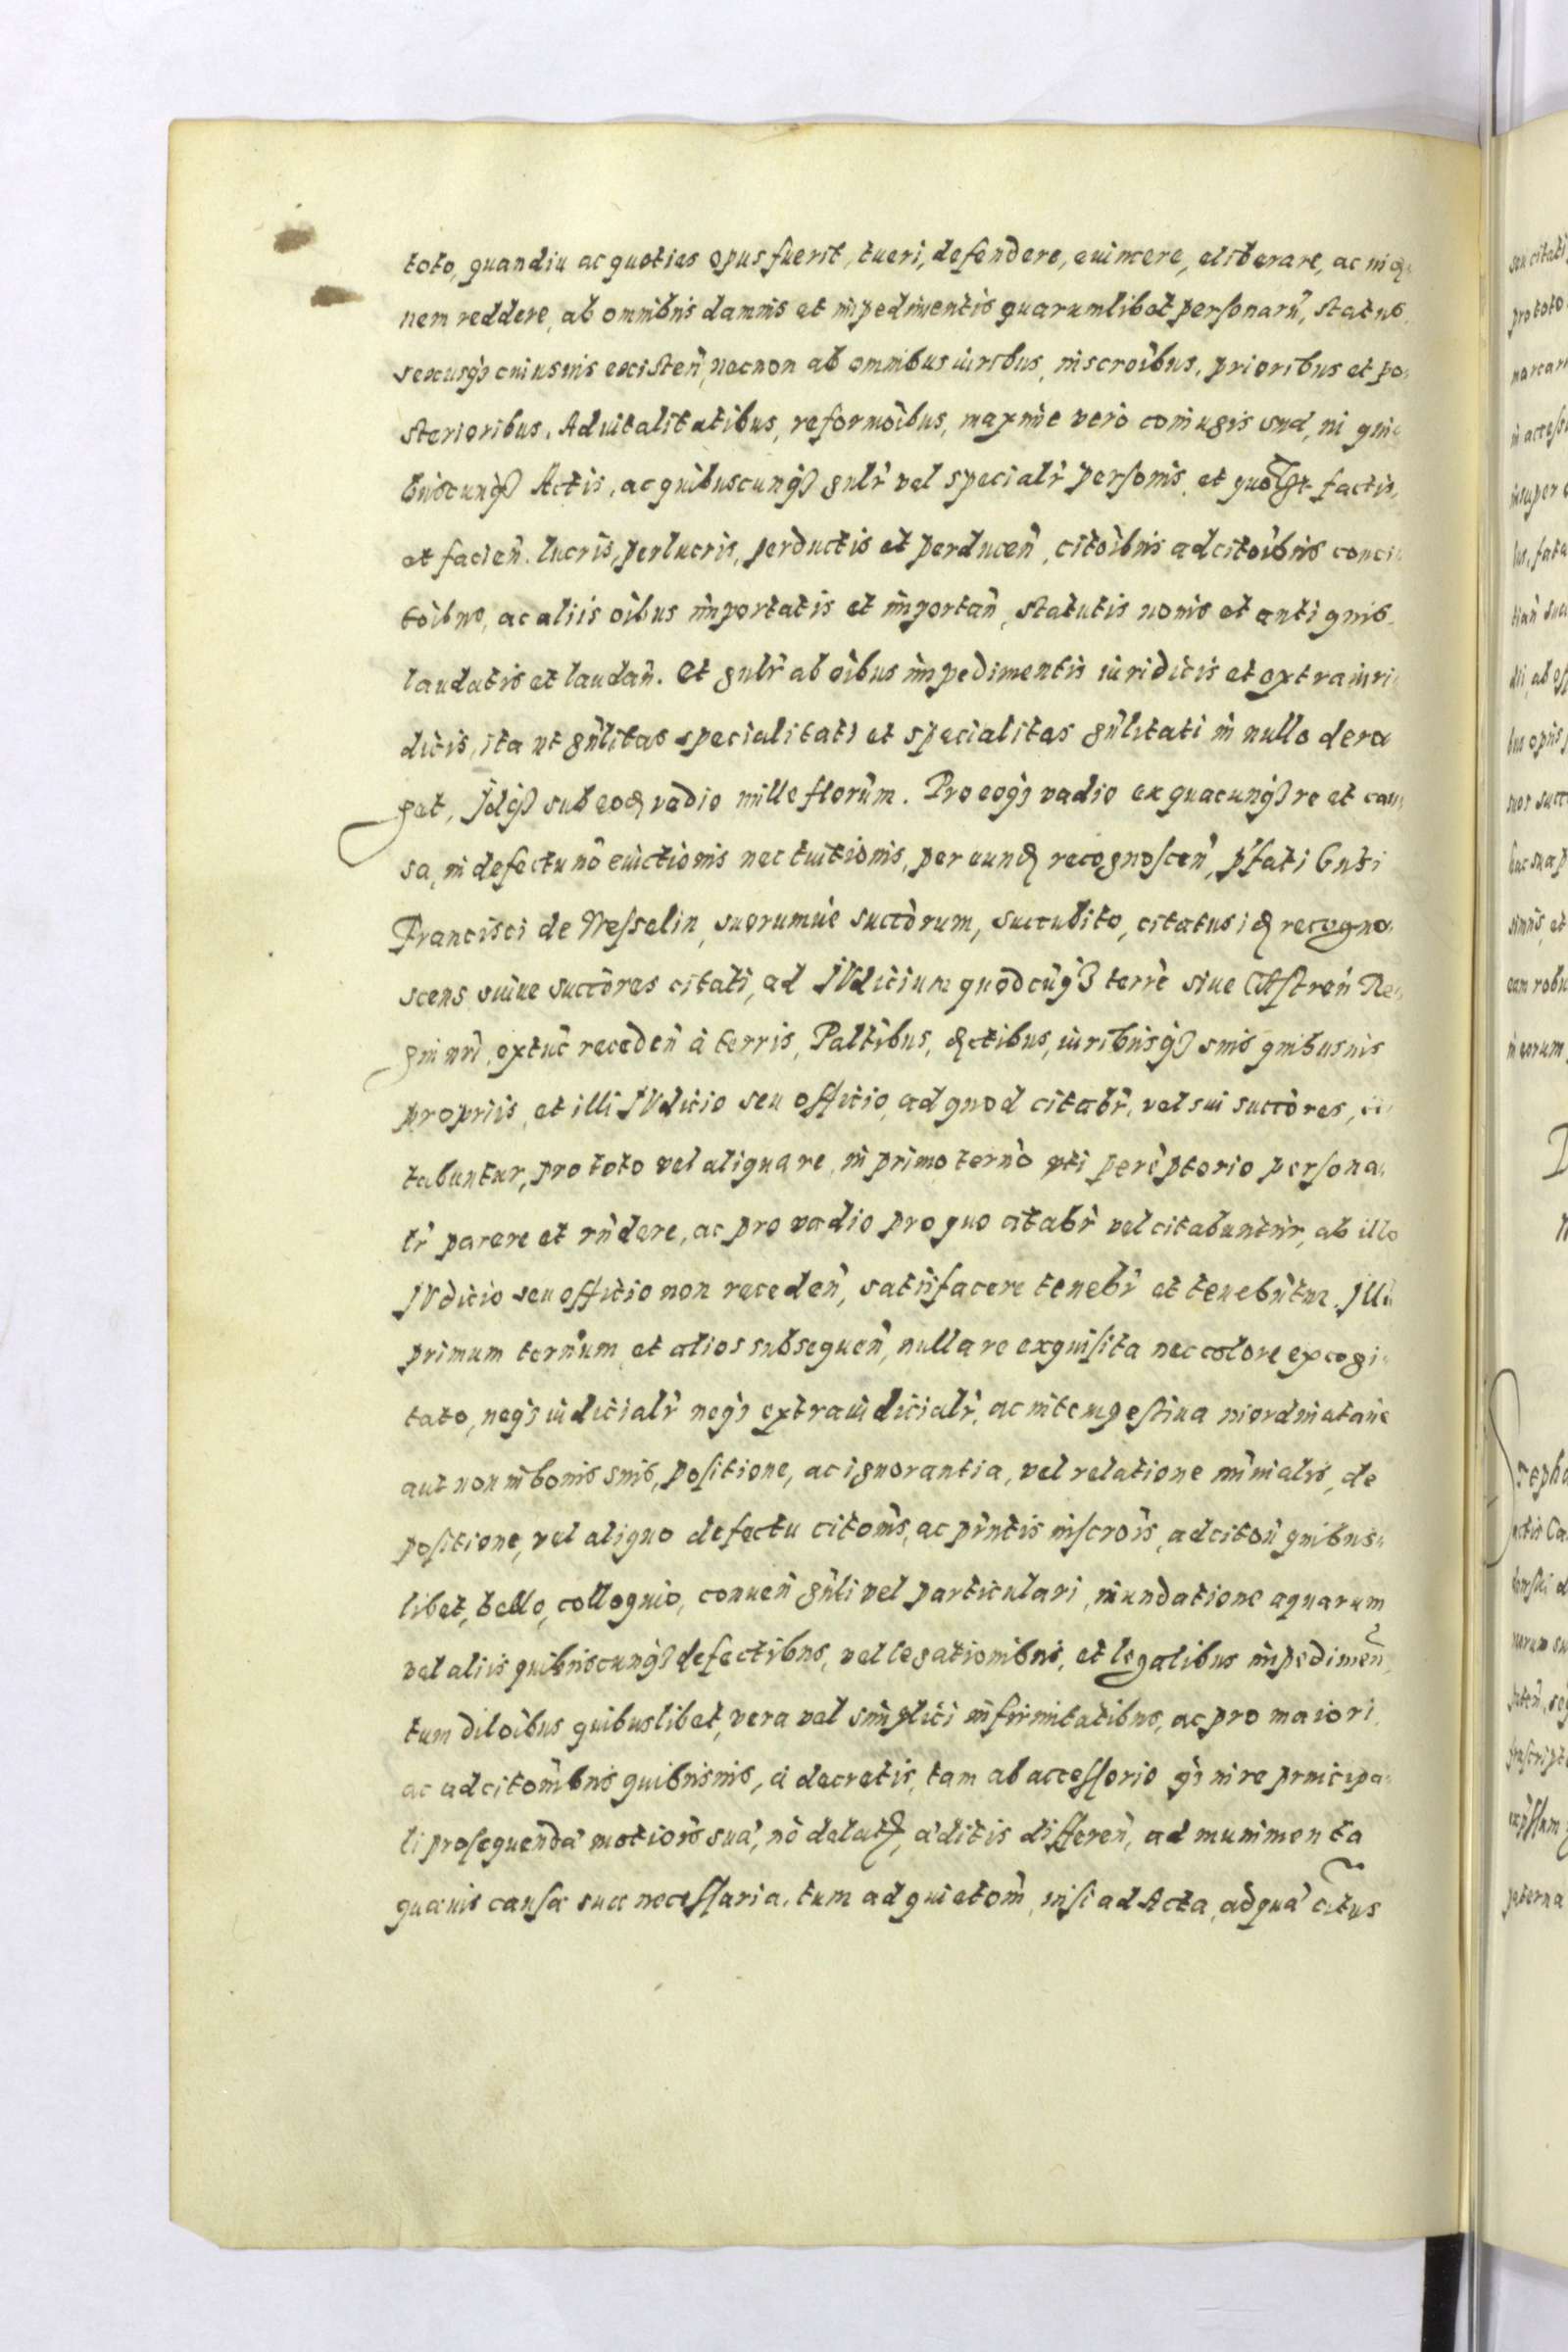 toto, quandiu ac quoties opus fuerit, tueri, defendere, euincere, eliberare, ac
nem reddere, ab omnibus damnis et impedimentis quarumlibet personarũ, status
sexusq3 cuiusuis existeñ, necnon ab omnibus iuribus, inscrõibus, prioribus et po=
sterioribus, Aduitalitatibus, reformõibus, maxime vero coniugis suæ, in qui=
buscunq3 Actis, ac quibuscunq3 gnlr̃ vel specialr̃ personis, et factis,
et facieñ. lucris, perlucris, perductis et perduceñ, citõibus adcitõibus conci=
tõibus, ac aliis oĩbus importatis et importañ, statutis nouis et antiquis,
laudatis et laudañ. Et gnlr̃ ab oĩbus impedimentis iuridicis et extraiuri=
dicis, ita ut gñlitas specialitati et specialitas gñlitati in nullo dero
get, Idq3 sub vadio mille florũm. Pro eoq3 vadio ex quacunq3 re et cau=
sa, in defectu nõ euictionis nec tuitionis, per recognosceñ, pfati Gnsi
Francisci de Wesselin, suorumue succõrum, succubito, citatus recogno=
scens suiue succõres citati, ad IVdicium quodcũq3 terrẽ siue Castreñ Re=
gni nrĩ, extũc recedeñ à terris, Paltibus, iuribusq3 suis quibusuis
propriis, et illi IVdicio seu officio, ad quod citabr̃, vel sui succõres, ci=
tabuntur, pro toto vel aliqua re, in primo termo uti perẽptorio persona=
lr̃ parere et rñdere, ac pro vadio pro quo citabr̃ vel citabuntur, ab illo
IVdicio seu officio non recedeñ, satisfacere tenebr̃ et tenebũtur.
primum ternum et alios subsequeñ, nulla re exquisita nec colore excogi=
tato, neq3 iudicialr̃ neq3 extraiudicialr̃, ac intempestiua inordinataue
aut non in bonis suis, positione, ac ignorantia, vel relatione minialis, de
positione, vel aliquo defectu citõnis, ac pñtis inscrõis, adcitõn quibus=
libet, bello, colloquio, conueñ gñli vel particulari, inundatione aquarum
vel aliis quibuscunq3 defectibus, vel legationibus, et legalibus impedimeñ,
tum dilõibus quibuslibet, vera vel simplici infirmitatibus, ac pro maiori,
ac adcitõnibus quibusuis, à decretis, tam ab accessorio q3 in re principa=
li prosequenda motiõis suã, nõ à ditis differeñ, ad munimenta
quæuis causæ suæ necessaria, tum ad quietõm, nisi ad Acta, ad quã citus